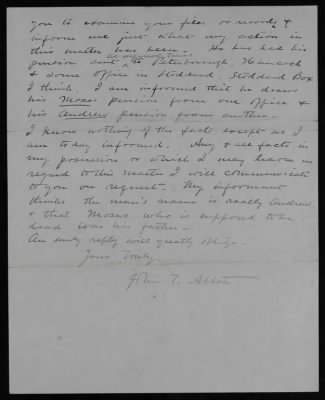 you to examine your files or records &
inform me just what my action in
this matter has been. He has had his
at different times
pension sent to Peterborough, Hancock
& some office in Stoddard, Stoddard Box
I think. I am informed that he draws
his Moses pension from one office &
his Andrew pension from another.
I know nothing of the fact except as I
am today informed. Any & all facts in
my possession or which I may learn in
regard to this matter I will communicate
to you on request. My informant
thinks the man's name is really Andrew
& that Moses who is supposed to be
dead was his father.
An early reply will greatly oblige.
Yours truly,
John T. Abbott.